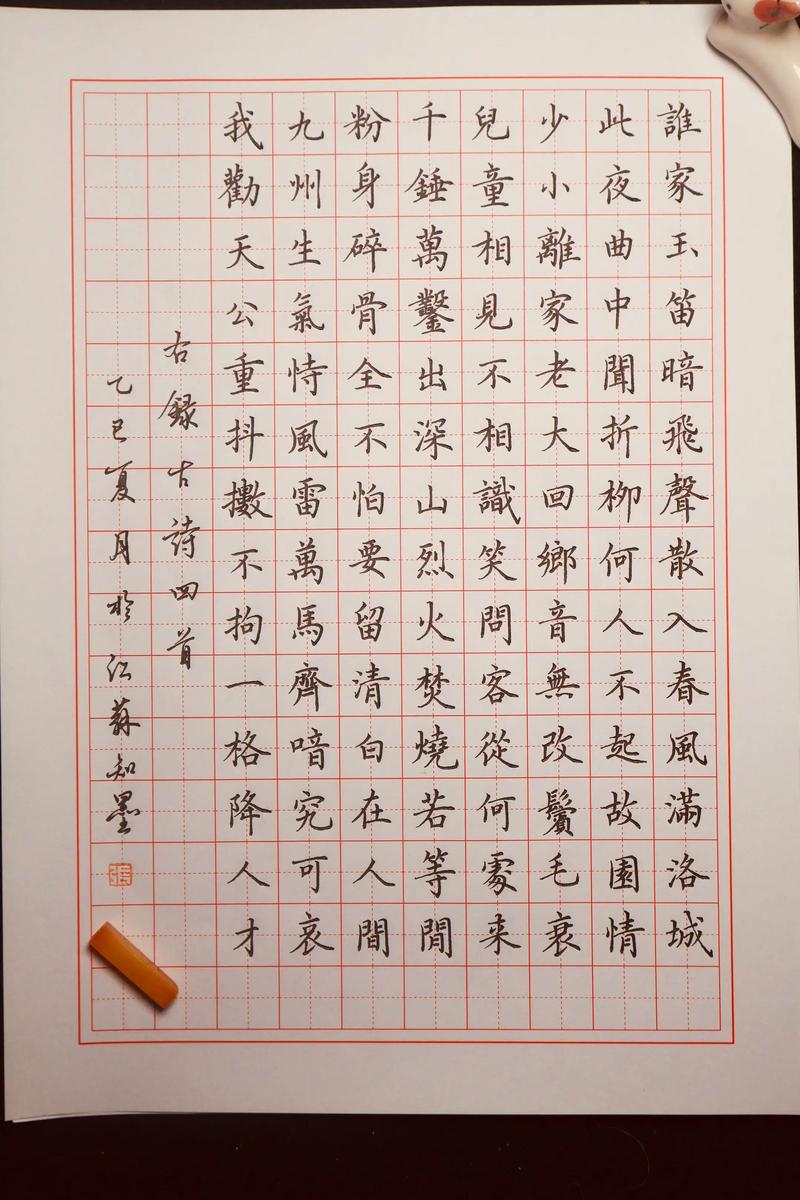 誰家玉笛暗飛聲散入春風滿洛城
此夜曲中聞折柳何人不起故園情
少小離家老大回鄉音無改鬢毛衰
兒童相見不相識笑問客從何處来
千錘萬鑿出深山烈火焚燒若等閒
粉身碎骨全不怕要留清白在人間
九州生氣恃風雷萬馬齊喑究可哀
我勸天公重抖擻不拘一格降人才
右錄古詩四首
乙巳夏月於江蘇知墨
張